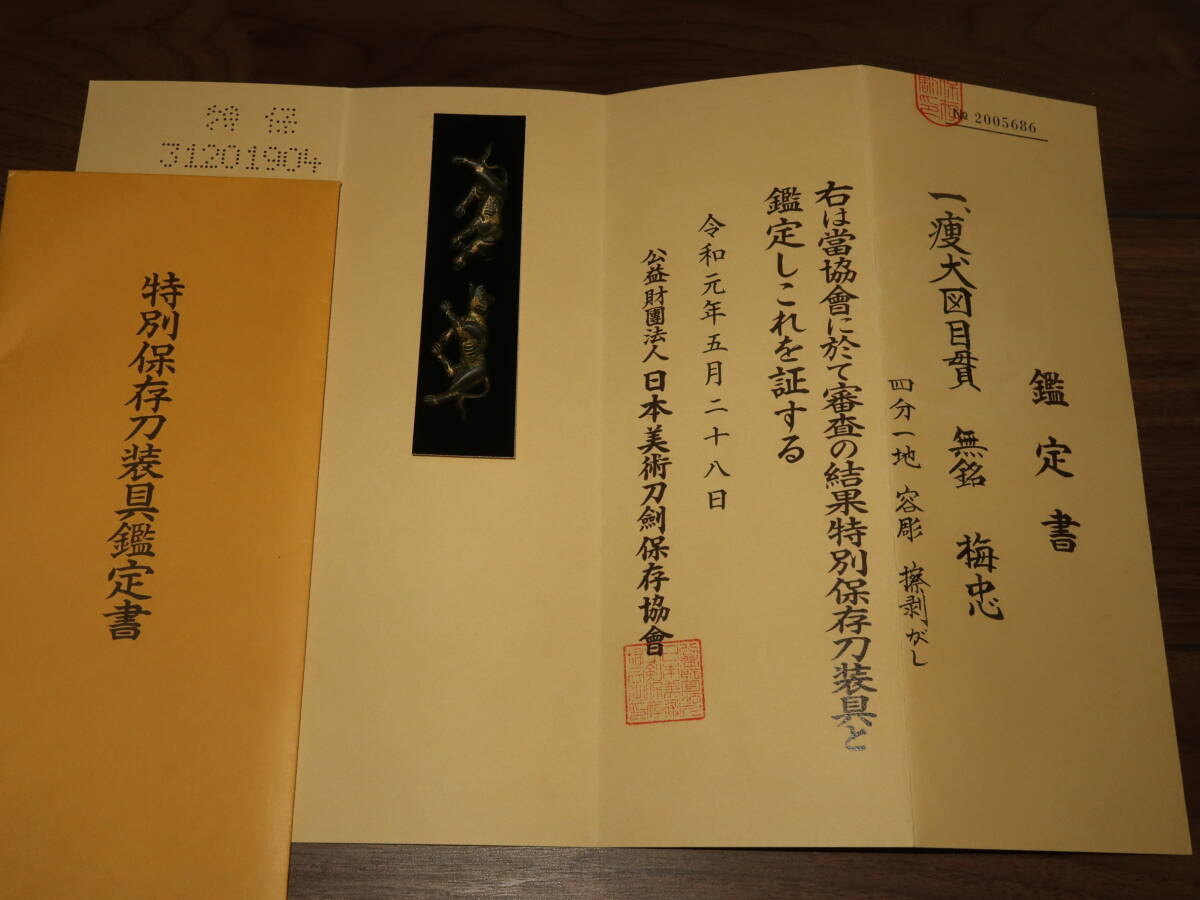 特別保存刀装具鑑定書
№ 2005686
鑑定書
一、痩犬図目貫 無銘 梅忠
四分一地 容彫 擦剥がし
右は當協會に於て審査の結果特別保存刀装具と
鑑定しこれを証する
令和元年五月二十八日
公益財團法人 日本美術刀劍保存協會
31201904